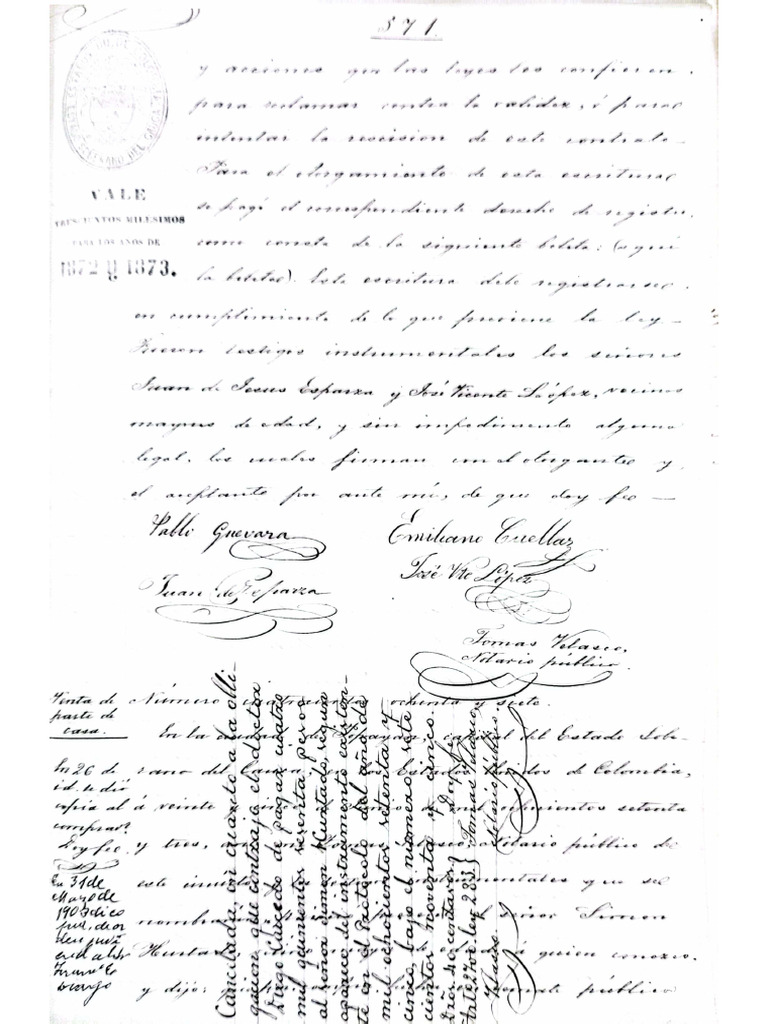 871.
VALE
TRESCIENTOS MILESIMOS
PARA LOS AÑOS DE
1872 y 1873.
y acciones que las leyes les confieren,
para reclamar contra la validez, ó para
intentar la rescision de este contrato.
Para el otorgamiento de esta escritura
se pagó el correspondiente derecho de registro,
como consta de la siguiente boleta: (aquí
la boleta). Esta escritura debe registrarse
en cumplimiento de lo que previene la ley
Fueron testigos instrumentales los señores
Juan de Jesus Esparza y José Vicente López, vecinos
mayores de edad, y sin impedimento alguno
legal, los cuales firman con el otorgante y
el aceptante por ante mí, de que doy fe
Pablo Guevara
Emiliano Cuellar
José Vte López
Juan de J. Esparza
Tomas Velasco.
Notario público.
Venta de
parte de
casa.
Número ochenta y siete.
En la de Popayán, capital del Estado Sobe-
rano del Cauca, Estados Unidos de Colombia,
á veinte mil ochocientos setenta
y tres, Notario público de
este que se
nombra señor Simon
Hurtado, á quien conozco,
y dijo: público
En 26 de
id. se dió
copia al
comprar
Doy fe
En 31 de
Mayo de
1903 dí co
pia, de or
den
Cancelada, en cuanto a la obli-
gacion que contrajo el doctor
Diego Caicedo de pagar cuatro
mil quinientos sesenta pesos
al señor Simon Hurtado, segun
aparece del instrumento existen-
te en el Protocolo del año de
mil ochocientos setenta y
cinco, bajo el número sete
cientos noventa y cinco.
Dro. 40 centavos. Doy fe
ley 283 Tomas Velasco
Velasco Notario público